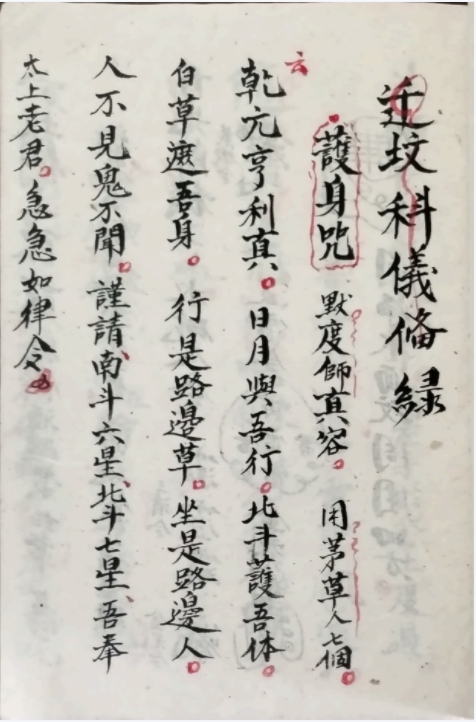 迁坟科儀俻緑
護身咒 默度師真容。用茅草人七個。
云
乾元亨利真。日月與吾行。北斗護吾体。
白草遮吾身。行是路邊草。坐是路邊人。
人不見鬼不聞。謹請南斗六星、北斗七星、吾奉
太上老君。急急如律令。